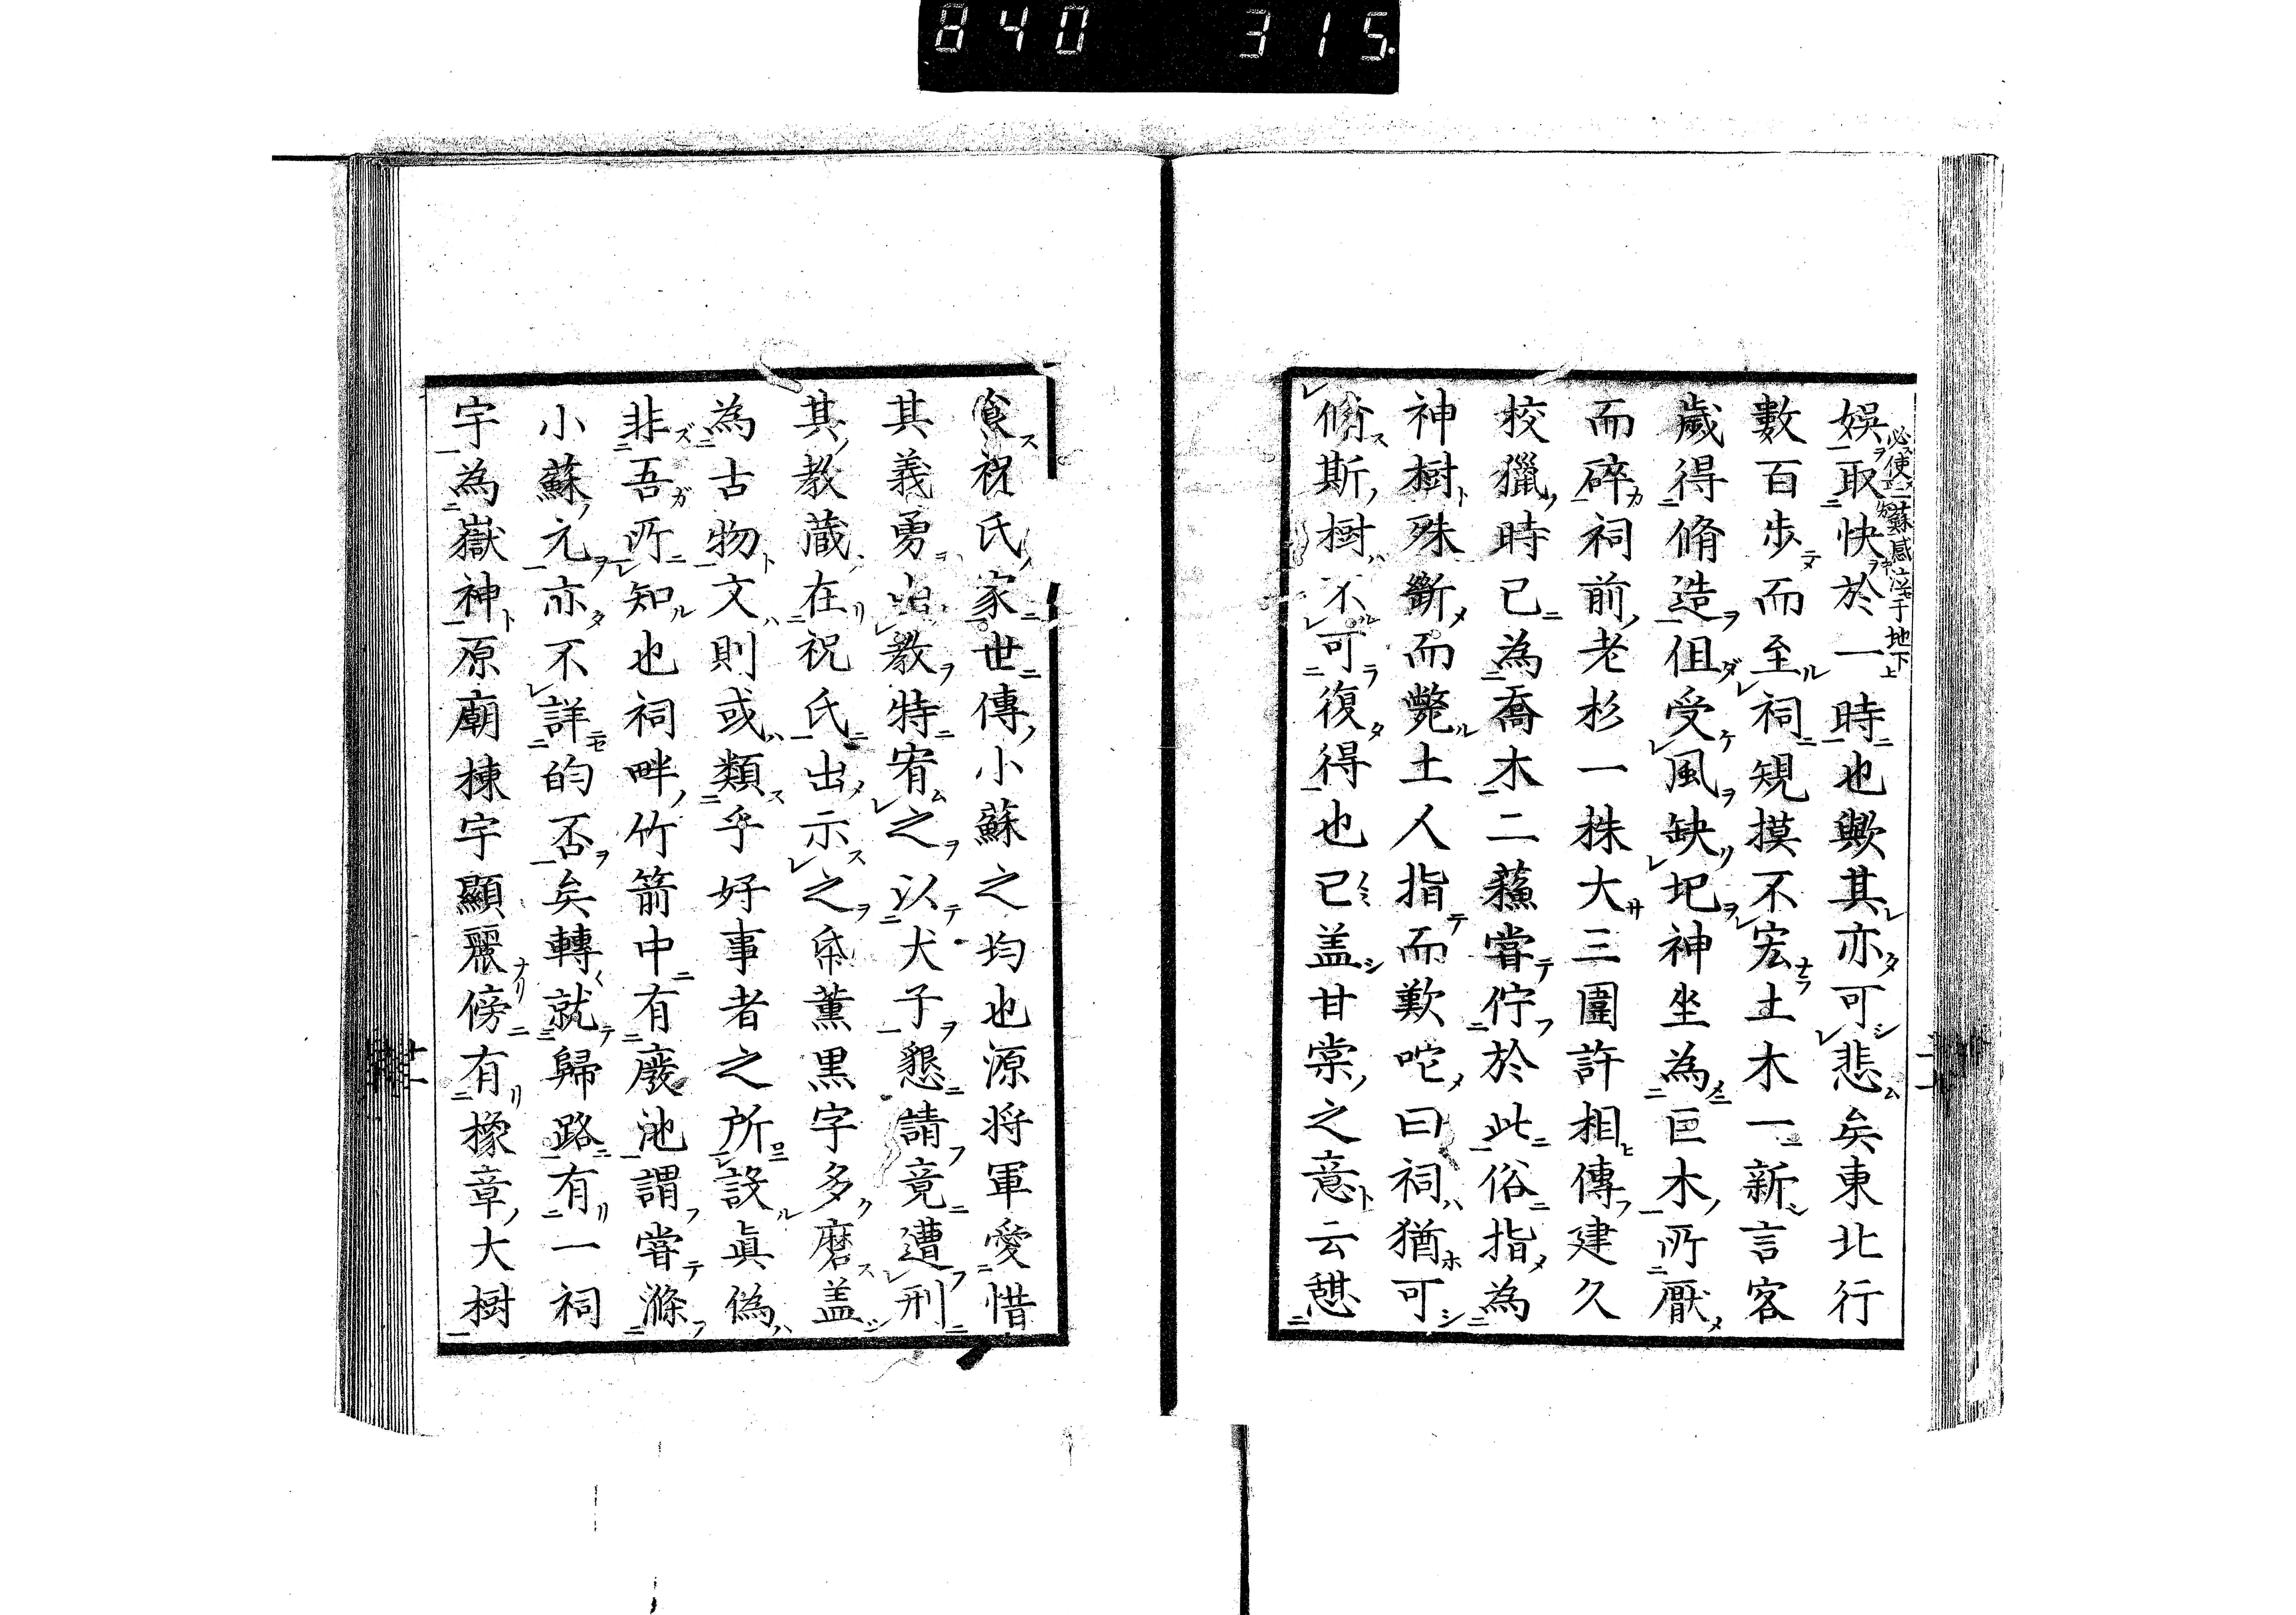 840 315
必使二蘇感泣于地下
娯取快於一時也歟其亦可悲矣東北行
數百歩而至祠規摸不宏土木一新言客
歳得脩造伹受風缺圯神坐為巨木所厭
而碎祠前老杉一株大三圍許相傳建久
校獵時已為喬木二蘓嘗佇於此俗指為
神樹殊斷而斃土人指而歎咜曰祠猶可
脩斯樹不可復得也已盖甘棠之意云憇
食祝氏家世傳小蘇之均也源将軍愛惜
其義勇出教特宥之以犬子懇請竟遭刑
其教蔵在祝氏出示之帋薫黒字多磨盖
為古物文則或類乎好事者之所設眞偽
非吾所知也祠畔竹箭中有廢池謂嘗滌
小蘇元亦不詳的否矣轉就歸路有一祠
宇為嶽神原廟棟宇顯麗傍有橡章大樹